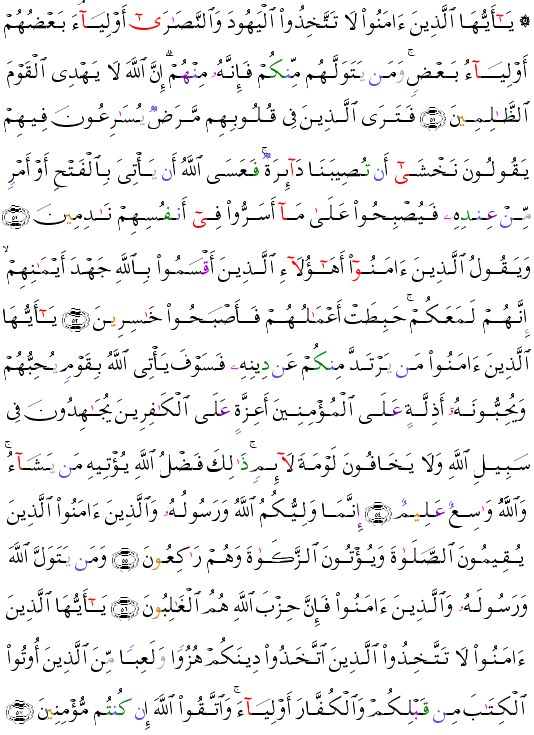 ۞ يَـٰٓأَيُّهَا ٱلَّذِينَ ءَامَنُوا۟ لَا تَتَّخِذُوا۟ ٱلْيَهُودَ وَٱلنَّصَـٰرَىٰٓ أَوْلِيَآءَ ۘ بَعْضُهُمْ
أَوْلِيَآءُ بَعْضٍ ۚ وَمَن يَتَوَلَّهُم مِّنكُمْ فَإِنَّهُۥ مِنْهُمْ ۗ إِنَّ ٱللَّهَ لَا يَهْدِى ٱلْقَوْمَ
ٱلظَّـٰلِمِينَ ﴿٥١﴾ فَتَرَى ٱلَّذِينَ فِى قُلُوبِهِم مَّرَضٌ يُسَـٰرِعُونَ فِيهِمْ
يَقُولُونَ نَخْشَىٰٓ أَن تُصِيبَنَا دَآئِرَةٌ ۚ فَعَسَى ٱللَّهُ أَن يَأْتِىَ بِٱلْفَتْحِ أَوْ أَمْرٍ
مِّنْ عِندِهِۦ فَيُصْبِحُوا۟ عَلَىٰ مَآ أَسَرُّوا۟ فِىٓ أَنفُسِهِمْ نَـٰدِمِينَ ﴿٥٢﴾
وَيَقُولُ ٱلَّذِينَ ءَامَنُوٓا۟ أَهَـٰٓؤُلَآءِ ٱلَّذِينَ أَقْسَمُوا۟ بِٱللَّهِ جَهْدَ أَيْمَـٰنِهِمْ ۙ
إِنَّهُمْ لَمَعَكُمْ ۚ حَبِطَتْ أَعْمَـٰلُهُمْ فَأَصْبَحُوا۟ خَـٰسِرِينَ ﴿٥٣﴾ يَـٰٓأَيُّهَا
ٱلَّذِينَ ءَامَنُوا۟ مَن يَرْتَدَّ مِنكُمْ عَن دِينِهِۦ فَسَوْفَ يَأْتِى ٱللَّهُ بِقَوْمٍ يُحِبُّهُمْ
وَيُحِبُّونَهُۥٓ أَذِلَّةٍ عَلَى ٱلْمُؤْمِنِينَ أَعِزَّةٍ عَلَى ٱلْكَـٰفِرِينَ يُجَـٰهِدُونَ فِى
سَبِيلِ ٱللَّهِ وَلَا يَخَافُونَ لَوْمَةَ لَآئِمٍ ۚ ذَٰلِكَ فَضْلُ ٱللَّهِ يُؤْتِيهِ مَن يَشَآءُ ۚ
وَٱللَّهُ وَٰسِعٌ عَلِيمٌ ﴿٥٤﴾ إِنَّمَا وَلِيُّكُمُ ٱللَّهُ وَرَسُولُهُۥ وَٱلَّذِينَ ءَامَنُوا۟ ٱلَّذِينَ
يُقِيمُونَ ٱلصَّلَوٰةَ وَيُؤْتُونَ ٱلزَّكَوٰةَ وَهُمْ رَٰكِعُونَ ﴿٥٥﴾ وَمَن يَتَوَلَّ ٱللَّهَ
وَرَسُولَهُۥ وَٱلَّذِينَ ءَامَنُوا۟ فَإِنَّ حِزْبَ ٱللَّهِ هُمُ ٱلْغَـٰلِبُونَ ﴿٥٦﴾ يَـٰٓأَيُّهَا ٱلَّذِينَ
ءَامَنُوا۟ لَا تَتَّخِذُوا۟ ٱلَّذِينَ ٱتَّخَذُوا۟ دِينَكُمْ هُزُوًا وَلَعِبًا مِّنَ ٱلَّذِينَ أُوتُوا۟
ٱلْكِتَـٰبَ مِن قَبْلِكُمْ وَٱلْكُفَّارَ أَوْلِيَآءَ ۚ وَٱتَّقُوا۟ ٱللَّهَ إِن كُنتُم مُّؤْمِنِينَ ﴿٥٧﴾